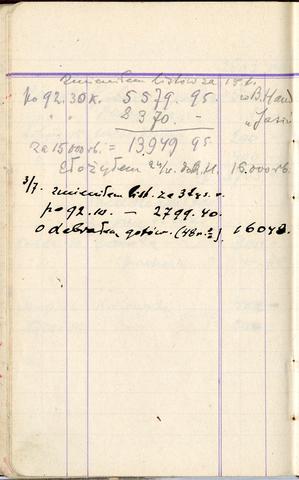 zmieniłem listów za 15 t.
po 92.30 k. 5579. 95. w B. Hand
" " 8370. – " Jasiń
za 15000 rb. = 13949 95.
złożyłem 24/VI. do B.H. 15.000 rb.
3/7. zmieniłem list. za 3 tys. r.
po 92.10. – 2799.40.
odebrałem gotów. (48 r. 2/2) 16048.